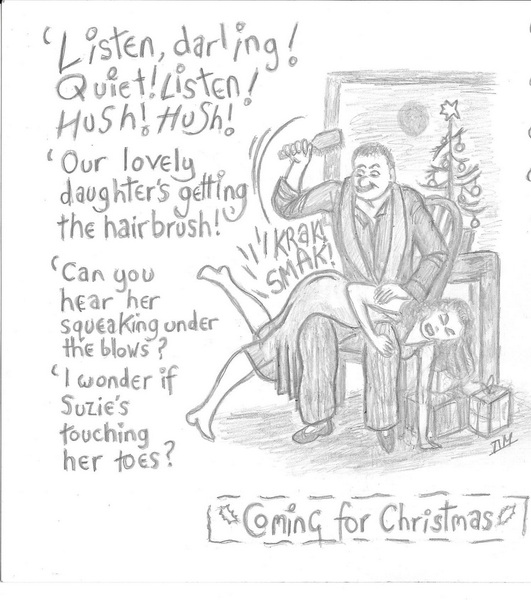 ‘Listen, darling!
Quiet! Listen!
Hush! Hush!
‘Our lovely
daughter's getting
the hairbrush!
‘Can you
hear her
squeaking under
the blows?
‘I wonder if
Suzie's
touching
her toes?
KRAK!
SMAK!
Coming for Christmas